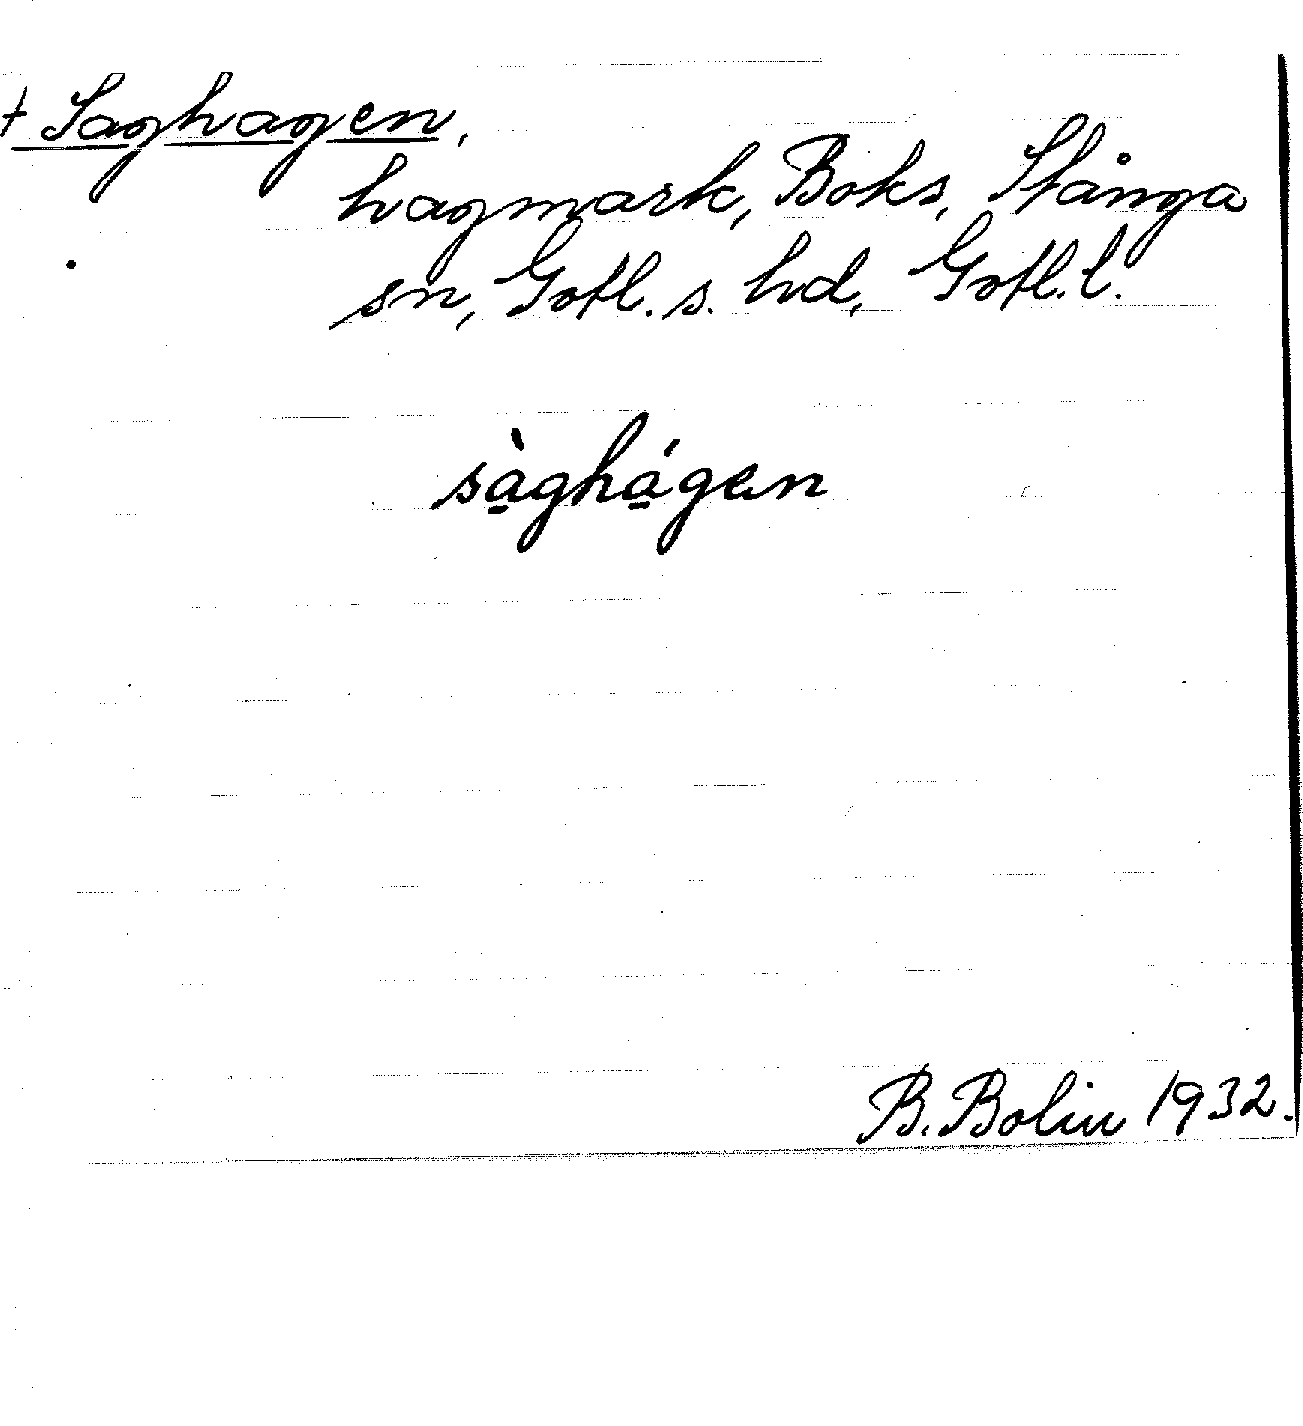 + Saghagen,
hagmark, Boks, Stånga
sn, Gotl. s. hd, Gotl. l.
sà̱ghá̱gen
B. Bolin 1932.